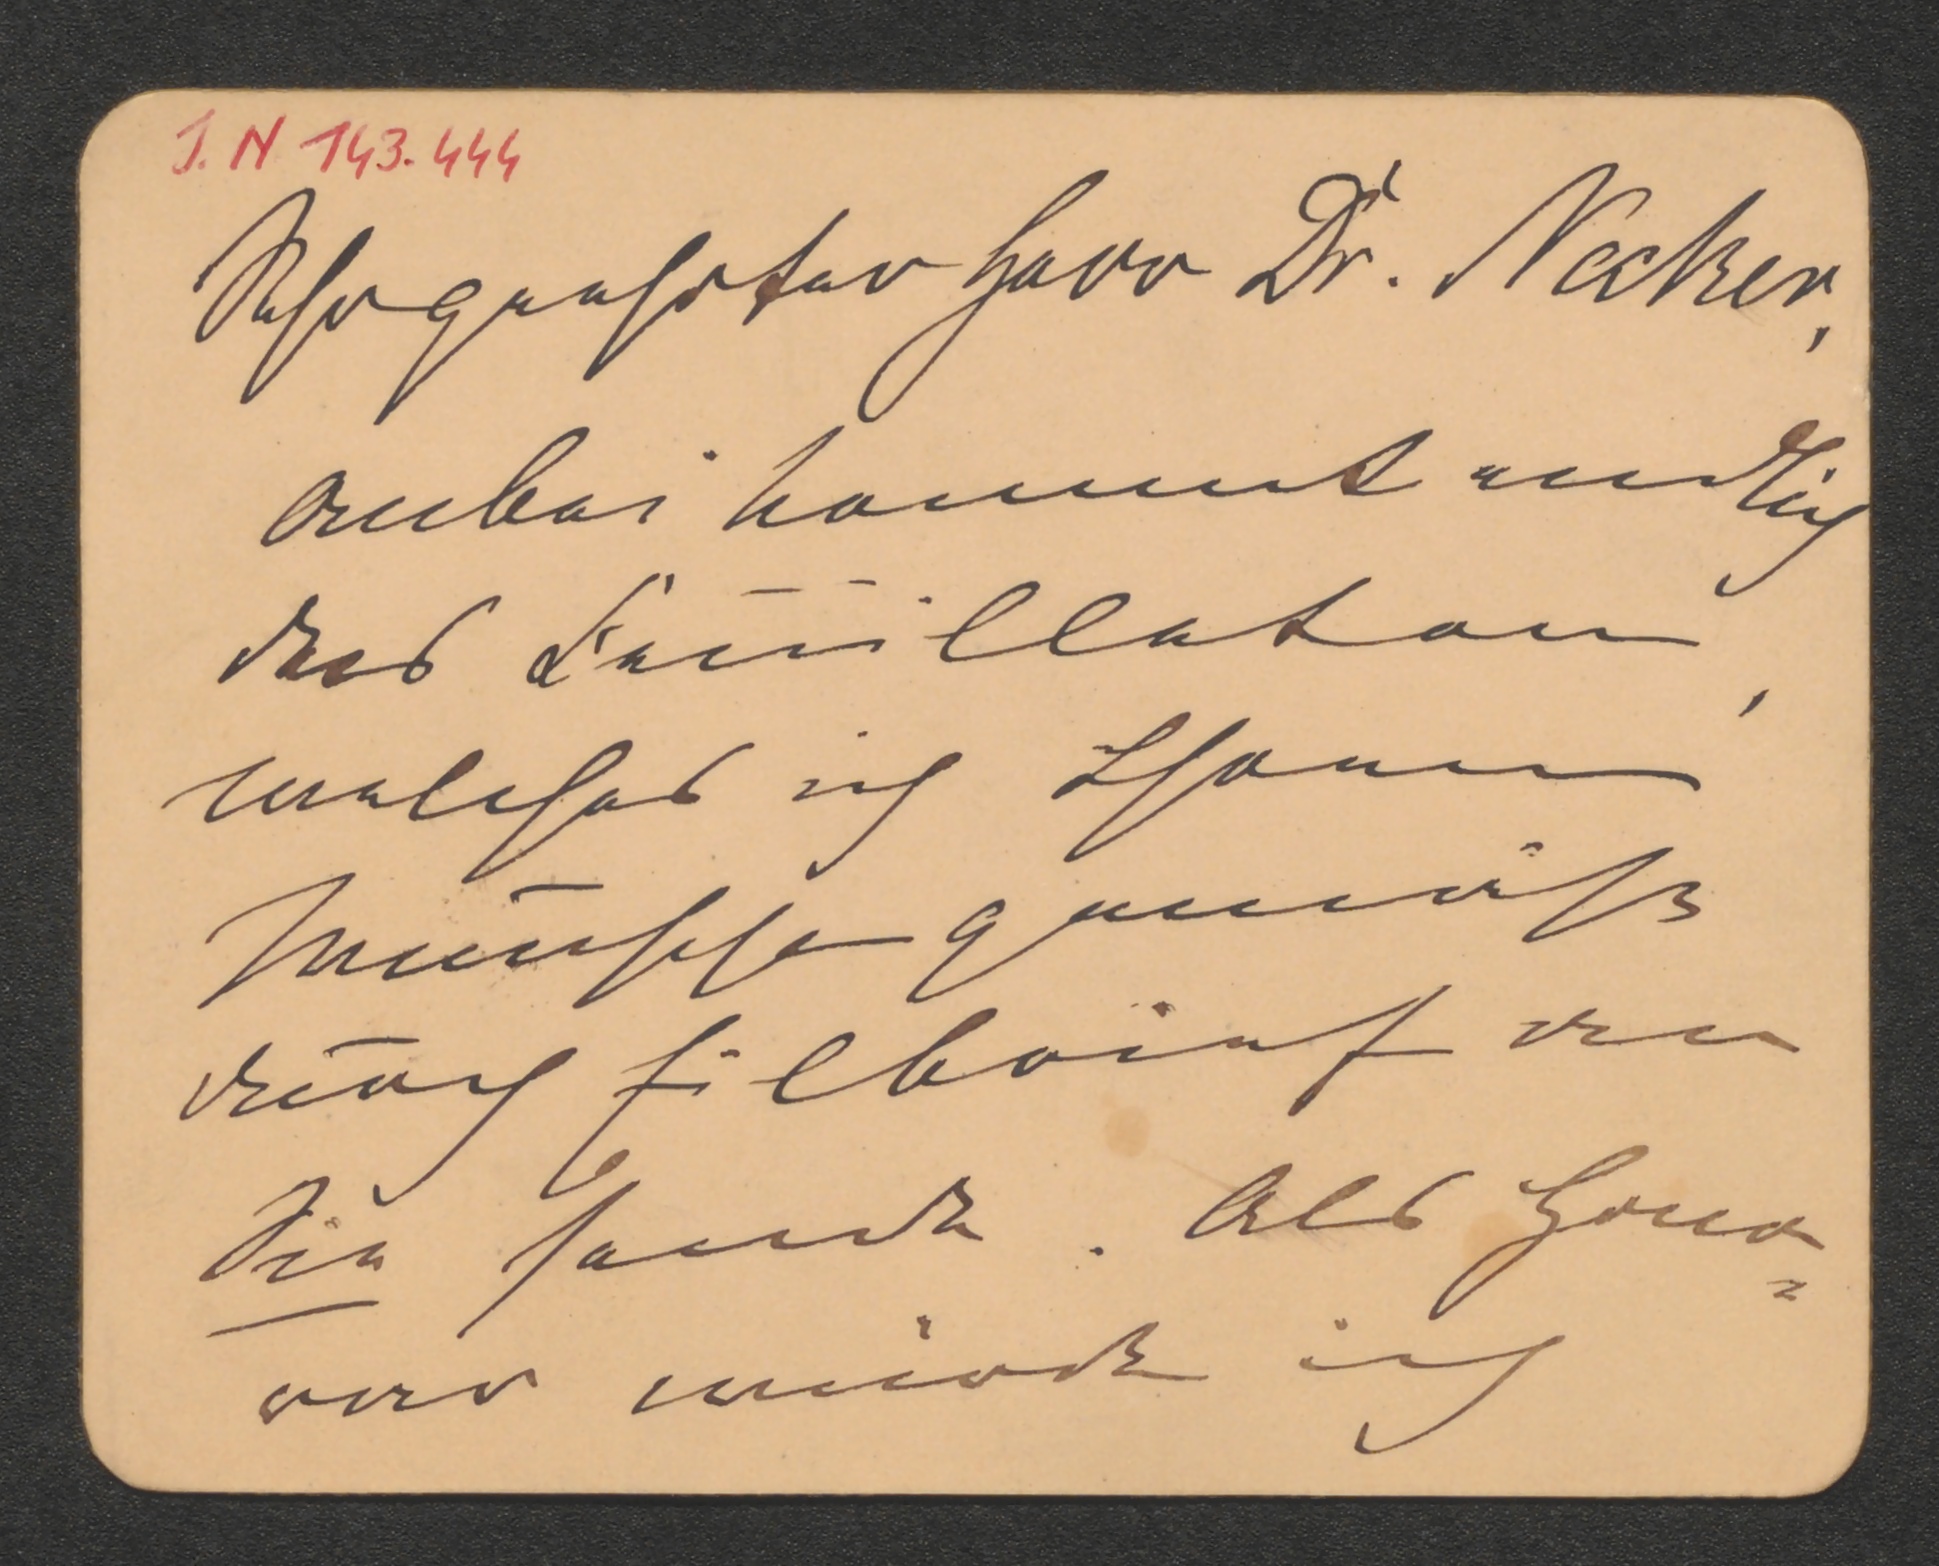 J. N 143.444
Sehr geehrter Herr Dr. Necker,
anbei kommt endlich
das Feuilleton,
welches ich Ihrem
Wunsche gemäß
durch Eilbrief an
Sie sende. Als Hono=
rar würde ich